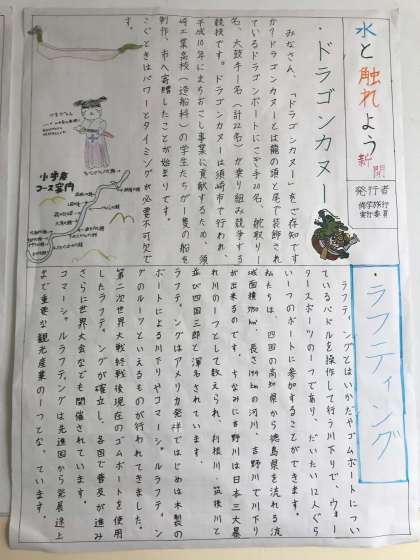 水と触れよう新聞
発行者
修学旅行
実行委員
・ドラゴンカヌー
みなさん、「ドラゴンカヌー」をご存知です
か？ドラゴンカヌーとは龍の頭と尾で装飾され
ているドラゴンボートにこぎ手20名、舵取り一
名、太鼓手一名(計22名)が乗り組み競争する
競技です。ドラゴンカヌーは須崎市で行われ、
平成10年にまちおこし事業に貢献するため、須
崎工業高校(造船科)の学生たちが一隻の船を
制作、市へ寄贈したことが始まりです。
こぐときはパワーとタイミングが必要不可欠で
す。
小歩危
コース案内
・ラフティング
ラフティングとはいかだやゴムボートについ
ているパドルを操作して行う川下りで、ウォー
タースポーツの一つであり、だいたい12人ぐら
い一つのボートに参加することができます。
私たちは、四国の高知県から徳島県を流れる流
域面積3750㎢、長さ194kmの河川、吉野川で川下り
が出来るのです。ちなみに吉野川は日本三大暴
れ川の一つとして数えられ、利根川・筑後川と
並び四国三郎と渾名されています。
ラフティングはアメリカ発祥ではじめは木製の
ボートによる川下りやコマーシャルラフティン
グのルーツといえるものが行われてきました。
第二次世界大戦終戦後現在のゴムボートを使用
したラフティングが確立し、各国で普及が進み
さらに世界大会なども開催されています。
コマーシャルラフティングは先進国から発展途上
まで重要な観光産業の一つとなっています。